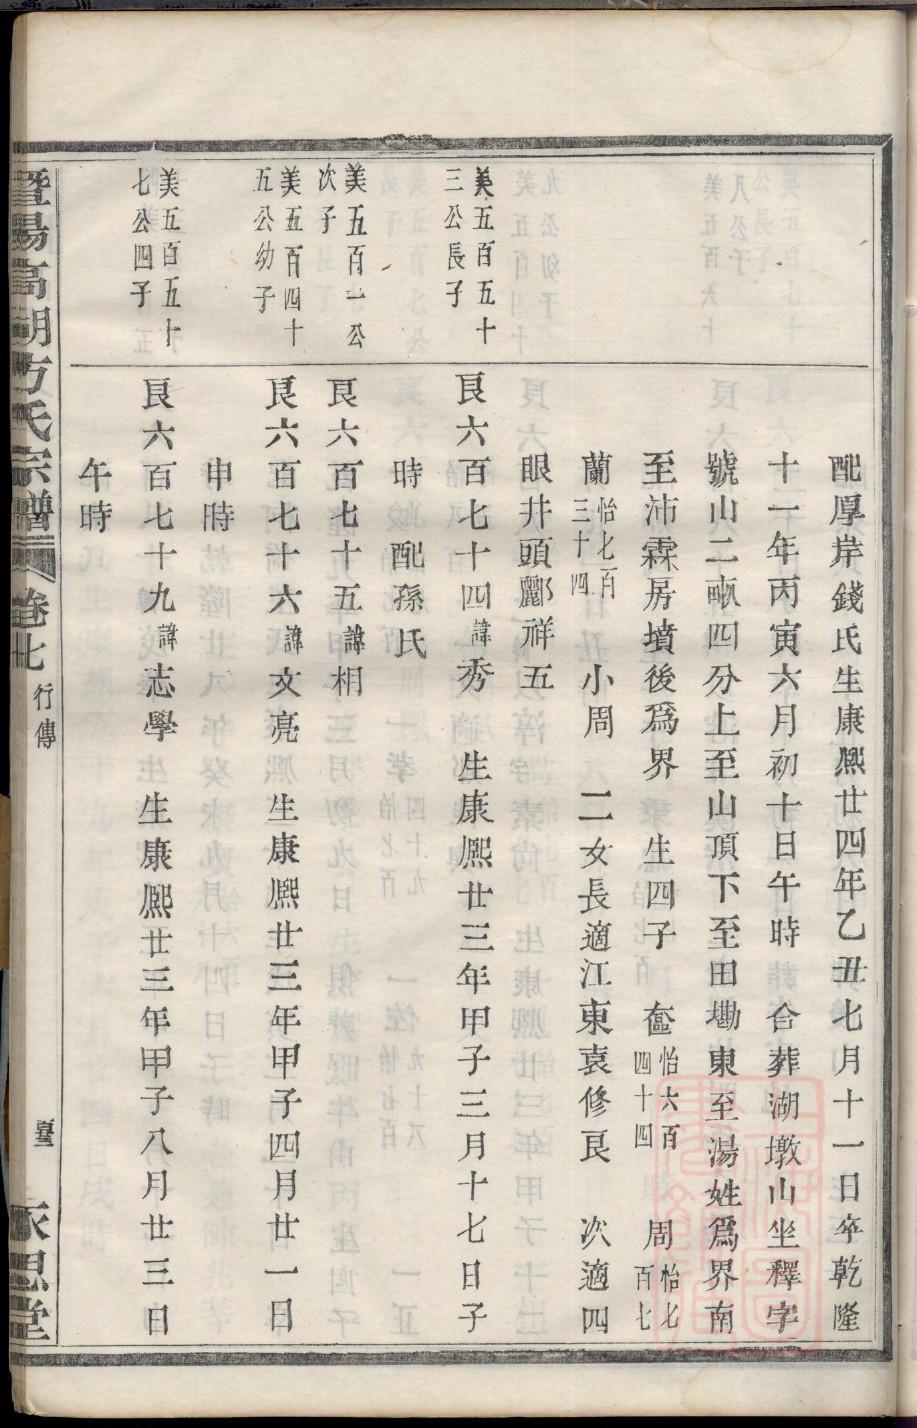 配厚岸錢氏生康熙廿四年乙丑七月十一日卒乾隆
十一年丙寅六月初十日午時合葬湖墩山坐釋字
號山二畝四分上至山頂下至田墈東至湯姓爲界南
至沛霖房墳後爲界 生四子 奩怡六百四十四 周怡七百七
蘭怡七百三十四 小周 二女長適江東袁修良 次適四
眼井頭酈祥五
美五百五十三公長子
良六百七十四諱秀 生康熙廿三年甲子三月十七日子
時 配孫氏
美五百一公次子
良六百七十五諱相
美五百四十五公幼子
良六百七十六諱文亮 生康熙廿三年甲子四月廿一日
申時
美五百五十七公四子
良六百七十九諱志學 生康熙廿三年甲子八月廿三日
午時
暨陽高湖方氏宗譜 卷七 行傳 永思堂